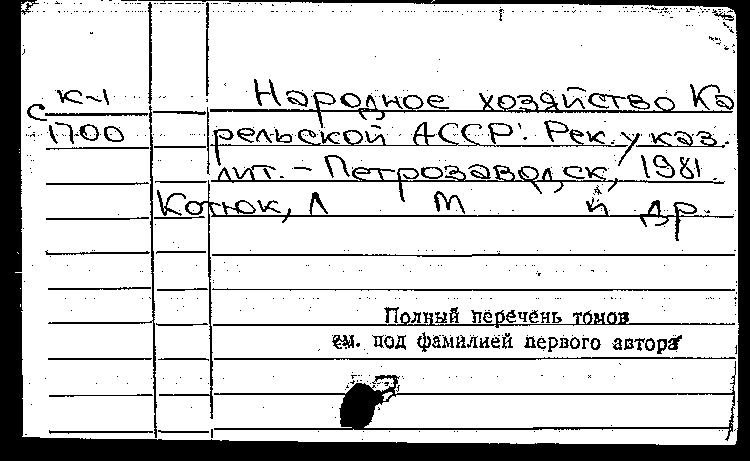 К-1
С 1700
Народное хозяйство Ка
рельской АССР: Рек. указ.
лит. – Петрозаводск, 1981.
Котюк, Л М и др.
Полный перечень томов
см. под фамилией первого автора